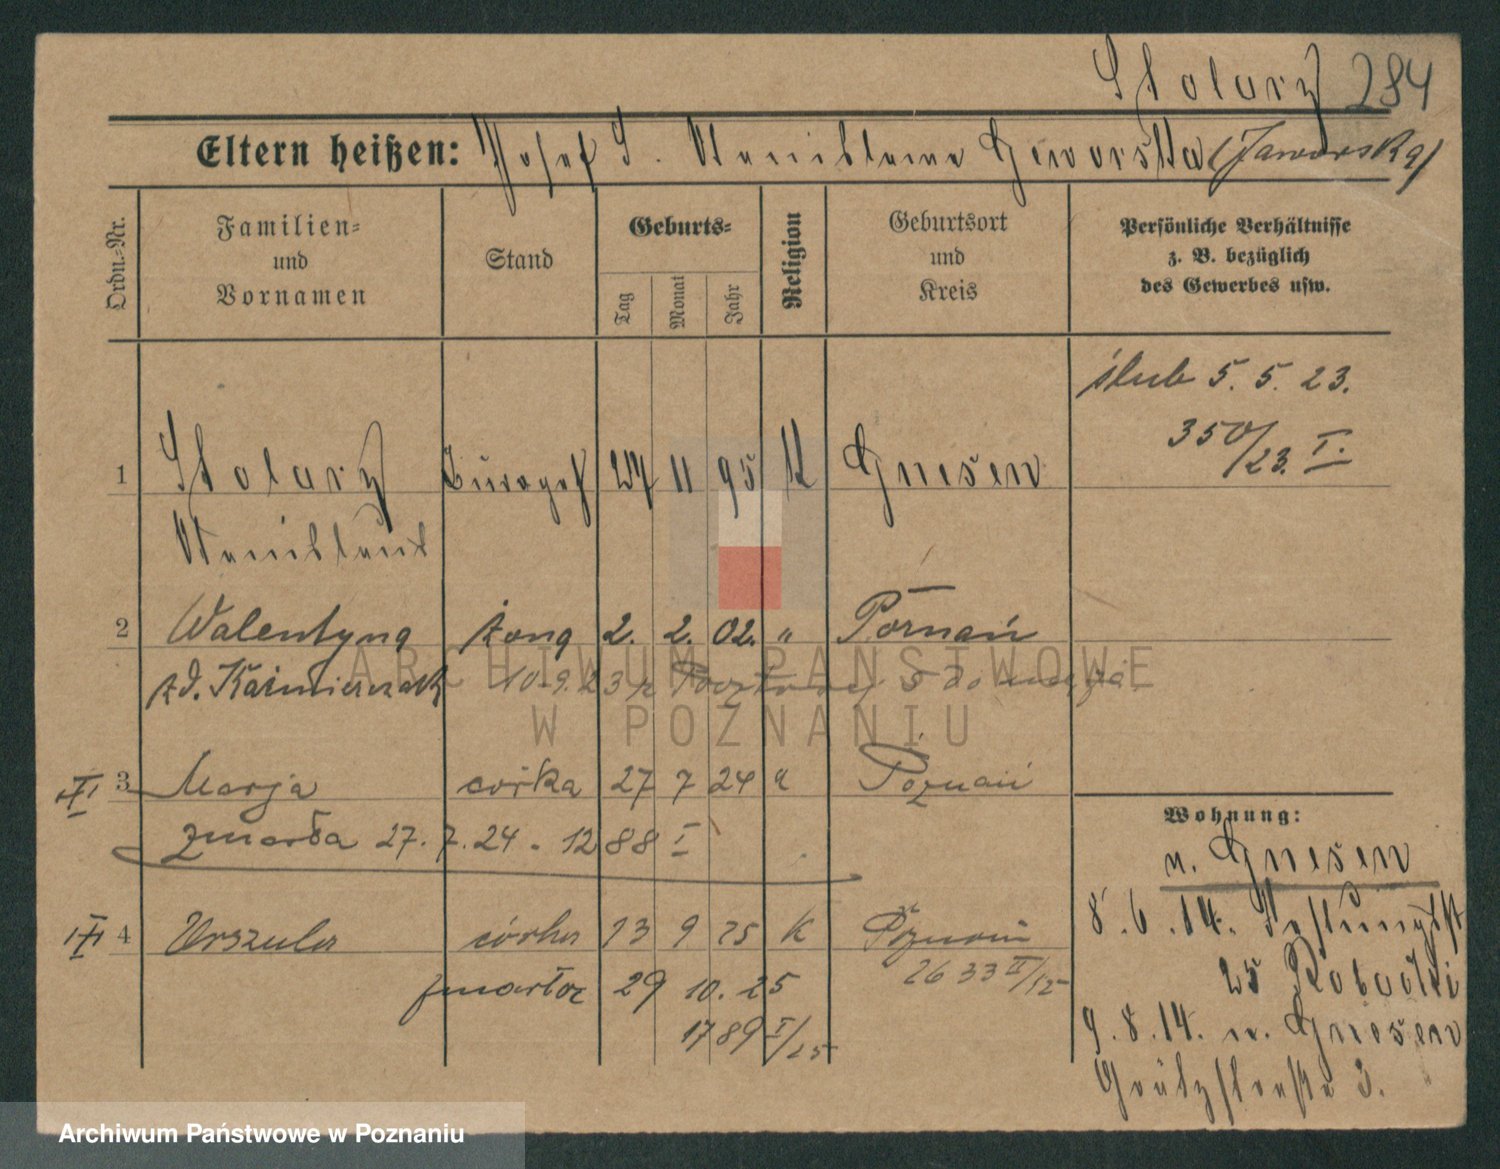 Stolarz 284
Eltern heißen: Josef S. Stanislawa Geworska (Jaworska)
Ordn.-Nr.
Familien-
und
Vornamen
Stand
Geburts-
Tag
Monat
Jahr
Religion
Geburtsort
und
Kreis
Persönliche Verhältnisse
z. B. bezüglich
des Gewerbes usw.
ślub 5. 5. 23.
350/23. I.
1 Stolarz Bürogeh 27 11 95 K Gnesen
Stanislaus
2 Walentyna żona 2. 2. 02. " Poznań
z d. Kaźmierczak 10.9.23
ARCHIWUM PAŃSTWOWE
W POZNANIU
3 Marja córka 27 7 24 " Poznań
zmarła 27. 7. 24. 1288 I
4 Urszula córka 13 9 25 K Poznań
2633 II/25
zmarła 29 10. 25
1789 I/25
Wohnung:
n. Gnesen
8. 6. 14. Festungsstr
25
9. 8. 14. n. Gnesen
3.
Archiwum Państwowe w Poznaniu